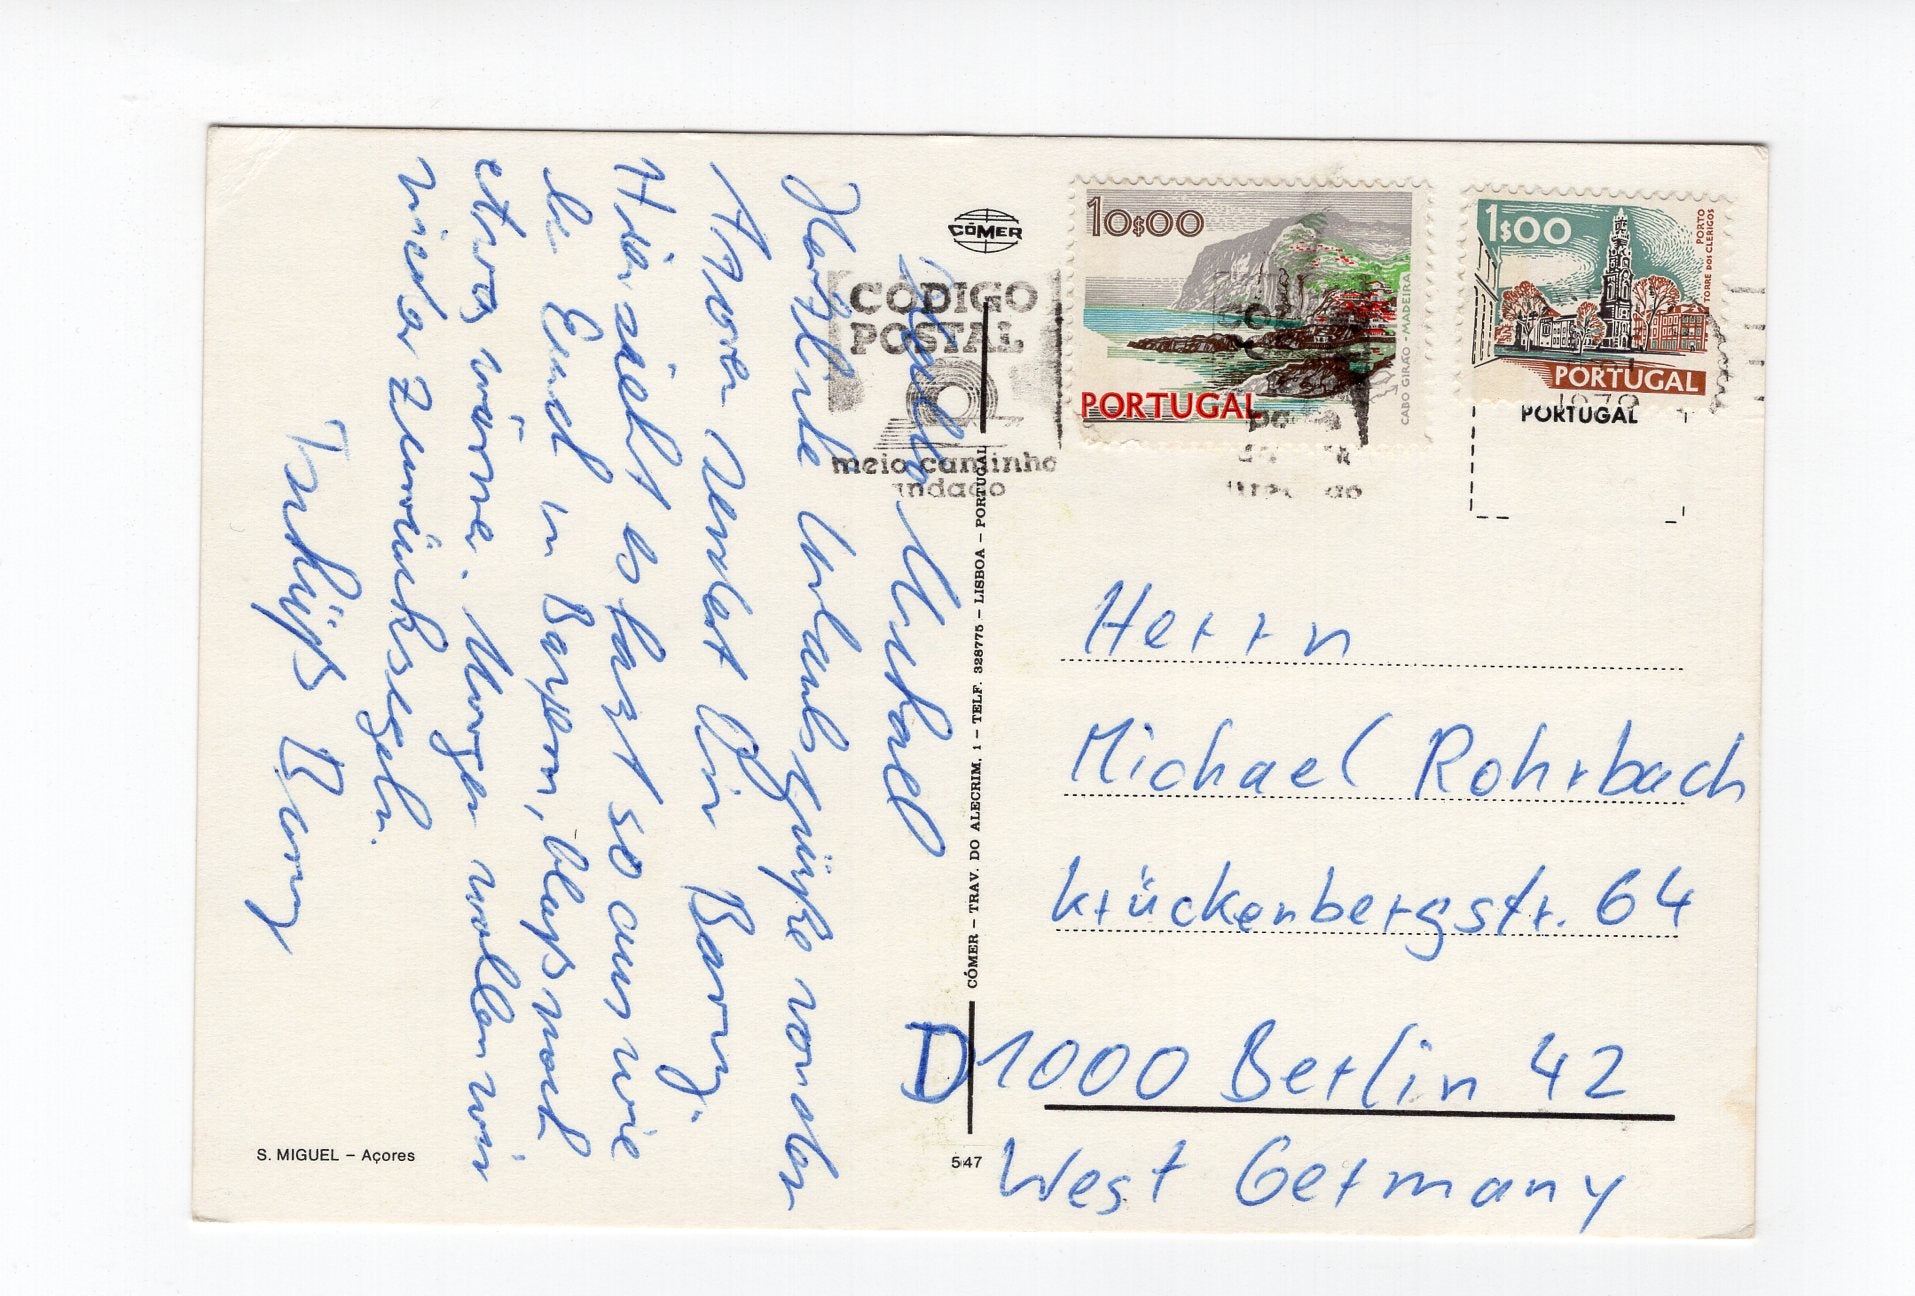 Hallo Michael
Herzliche Urlaubsgrüße von den
Azoren sendet Dir Barny.
Hier sieht es fast so aus wie
bei Euch in Bayern, bloß noch
etwas wärmer. Morgen wollen wir
wieder zurücksegeln.
Tschüß Barny
S. MIGUEL – Açores
CÓMER
CÓMER – TRAV. DO ALECRIM, 1 – TELF. 328775 – LISBOA – PORTUGAL
547
CÓDIGO
POSTAL
meio caminho
andado
10$00
PORTUGAL
CABO GIRÃO - MADEIRA
1$00
PORTO
TORRE DOS CLERIGOS
PORTUGAL
1979
PORTUGAL
Herrn
Michael Rohrbach
Krückenbergstr. 64
D 1000 Berlin 42
West Germany